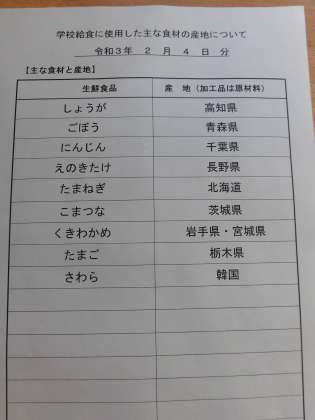 学校給食に使用した主な食材の産地について
令和3年 2 月 4 日 分
【主な食材と産地】
生鮮食品 産 地（加工品は原材料）
しょうが 高知県
ごぼう 青森県
にんじん 千葉県
えのきたけ 長野県
たまねぎ 北海道
こまつな 茨城県
くきわかめ 岩手県・宮城県
たまご 栃木県
さわら 韓国